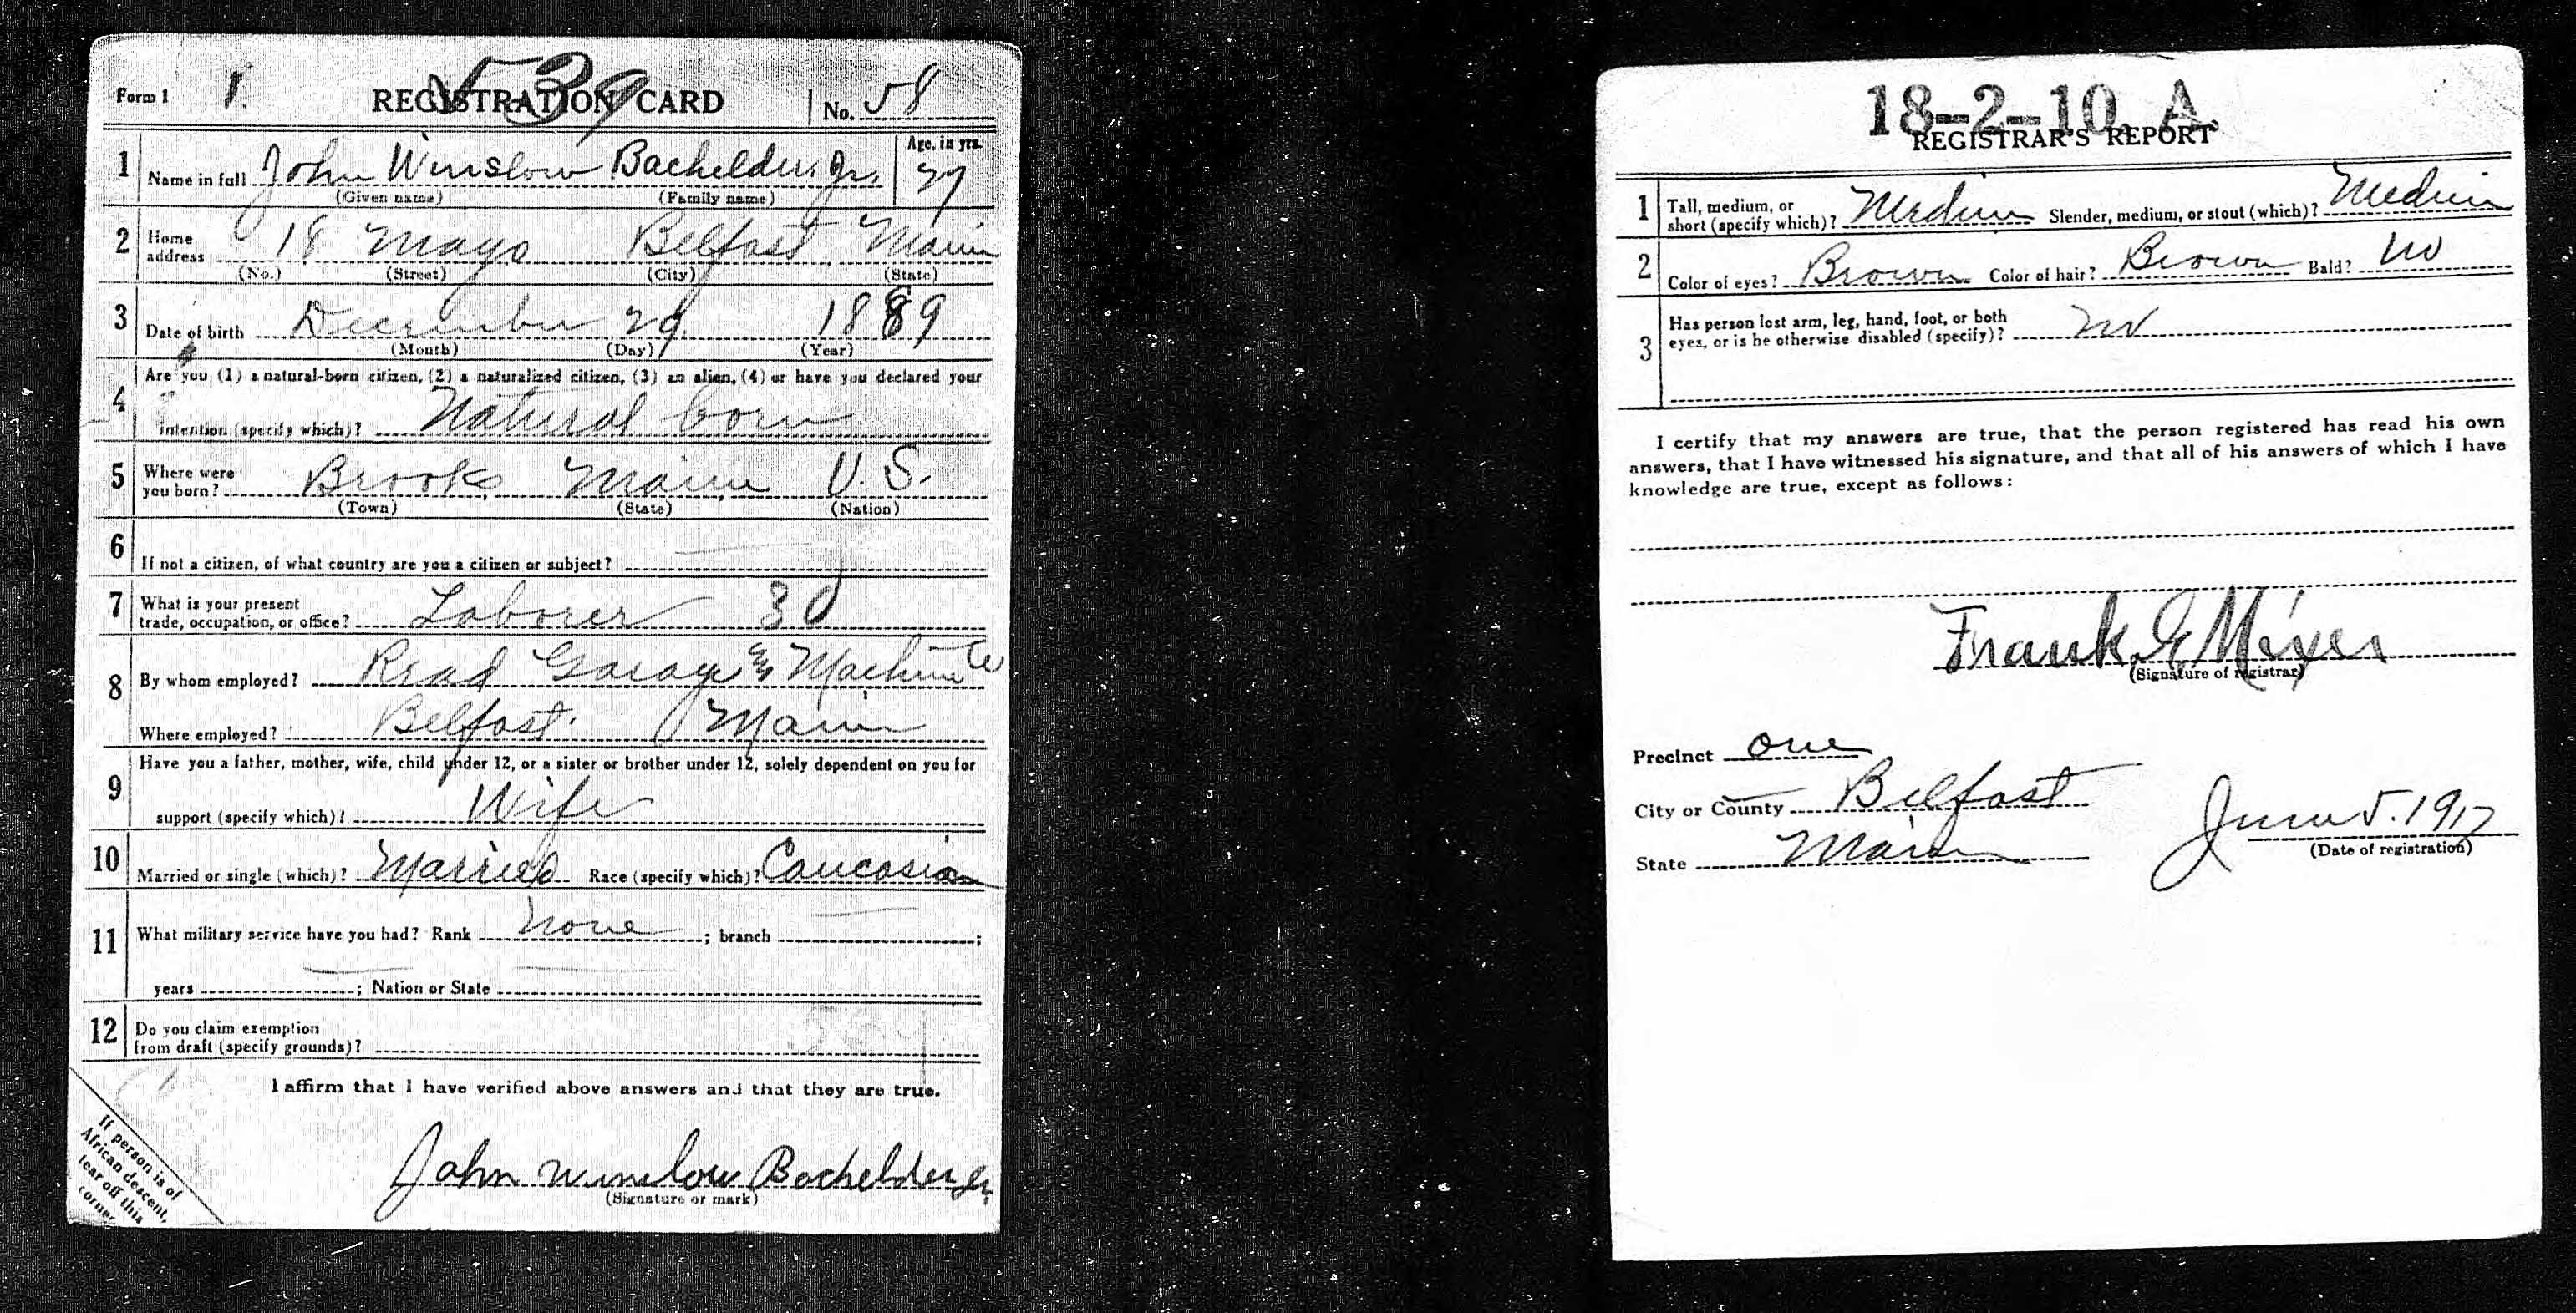 539
Form 1 1. REGISTRATION CARD No. 58
1 Name in full John Winslow Bachelder Jr. Age, in yrs. 27
(Given name) (Family name)
2 Home address 18 Mayo Belfast Maine
(No.) (Street) (City) (State)
3 Date of birth December 29. 1889
(Month) (Day) (Year)
4 Are you (1) a natural-born citizen, (2) a naturalized citizen, (3) an alien, (4) or have you declared your
intention (specify which)? Natural born
5 Where were
you born? Brooks Maine U.S.
(Town) (State) (Nation)
6 If not a citizen, of what country are you a citizen or subject?
7 What is your present
trade, occupation, or office? Laborer 30
8 By whom employed? Read Garage & Machine Co
Where employed? Belfast. Maine
9 Have you a father, mother, wife, child under 12, or a sister or brother under 12, solely dependent on you for
support (specify which)? Wife
10 Married or single (which)? Married Race (specify which)? Caucasian
11 What military service have you had? Rank none ; branch ;
years ; Nation or State
12 Do you claim exemption
from draft (specify grounds)?
539
I affirm that I have verified above answers and that they are true.
John Winslow Bachelder Jr.
(Signature or mark)
If person is of
African descent,
tear off this
corner
18-2-10. A.
REGISTRAR'S REPORT
1 Tall, medium, or
short (specify which)? Medium Slender, medium, or stout (which)? Medium
2 Color of eyes? Brown Color of hair? Brown Bald? No
3 Has person lost arm, leg, hand, foot, or both
eyes, or is he otherwise disabled (specify)? No
I certify that my answers are true, that the person registered has read his own
answers, that I have witnessed his signature, and that all of his answers of which I have
knowledge are true, except as follows:
Frank E Mixer
(Signature of registrar)
Precinct one
City or County Belfast
State Maine
June 5. 1917
(Date of registration)